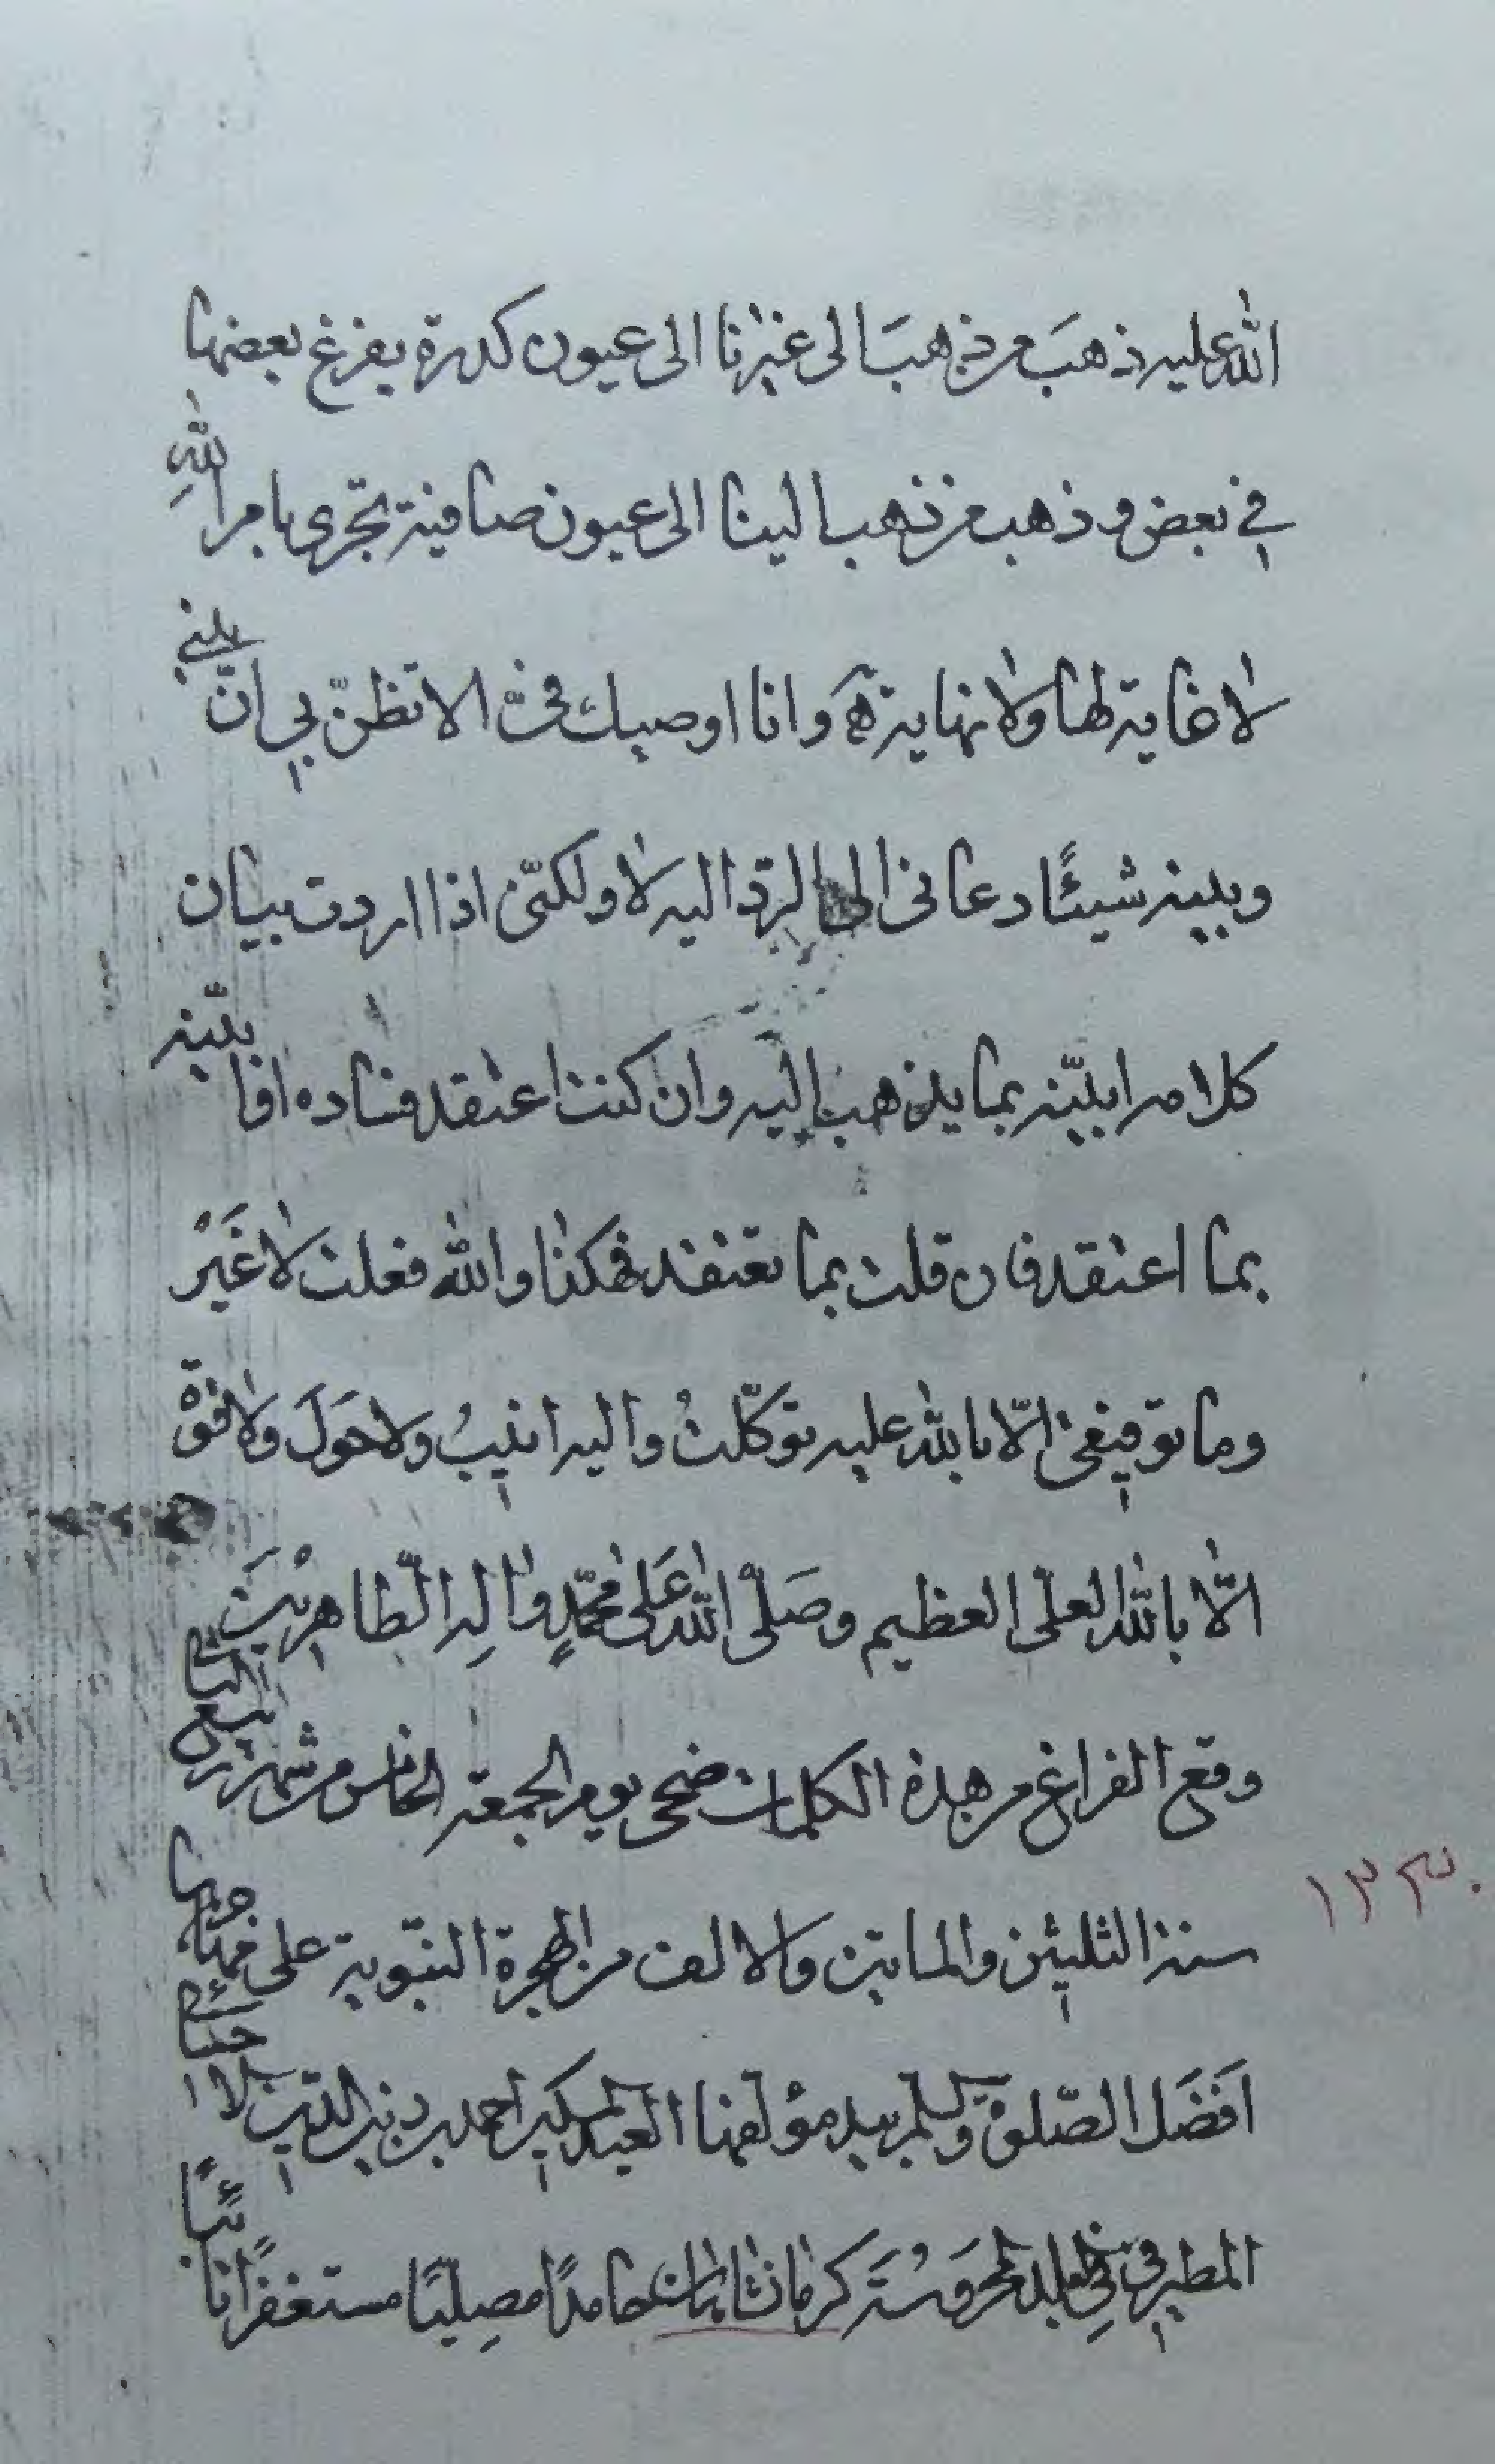 الله عليه ذهب من ذهب الى غيرنا الى عيون كدرة يفرغ بعضها
في بعض و ذهب من ذهب الينا الى عيون صافية تجرى بامر الله
لا غاية لها ولا نهاية هـ وانا اوصيك فى الا تظنّ بي انّ بينى
وبينه شيئًا دعانى الى الردّ اليه لا ولكنّى اذا اردت بيان
كلامه ابيّنه بما يذهب اليه وان كنت اعتقد فساده او ابيّنه
بما اعتقد فان قلت بما تعتقد فهكذا والله فعلت لا غَيْر
وما توفيقى الّا بالله عليه توكّلتُ واليه انيبُ ولا حَولَ ولا قوّة
الّا بالله العلى العظيم وصَلّى الله عَلى محمّدٍ واٰلِه الطّاهرينَ
وقع الفراغ من هذه الكلمات ضحى يوم الجمعة الخامس من شهر ربيع الثانى
سنة الثلثين والماتين والالف من الهجرة النبّوية على مهاجرها
١٢٣٠
افضَل الصّلوة والسلم بيد مؤلفها العبد المسكين احمد بن زين الدين الاحسائى
المطيرفى فى البلد المحروسَة كرمانشاهان حامدًا مصليًا مستغفرًا تائبًا